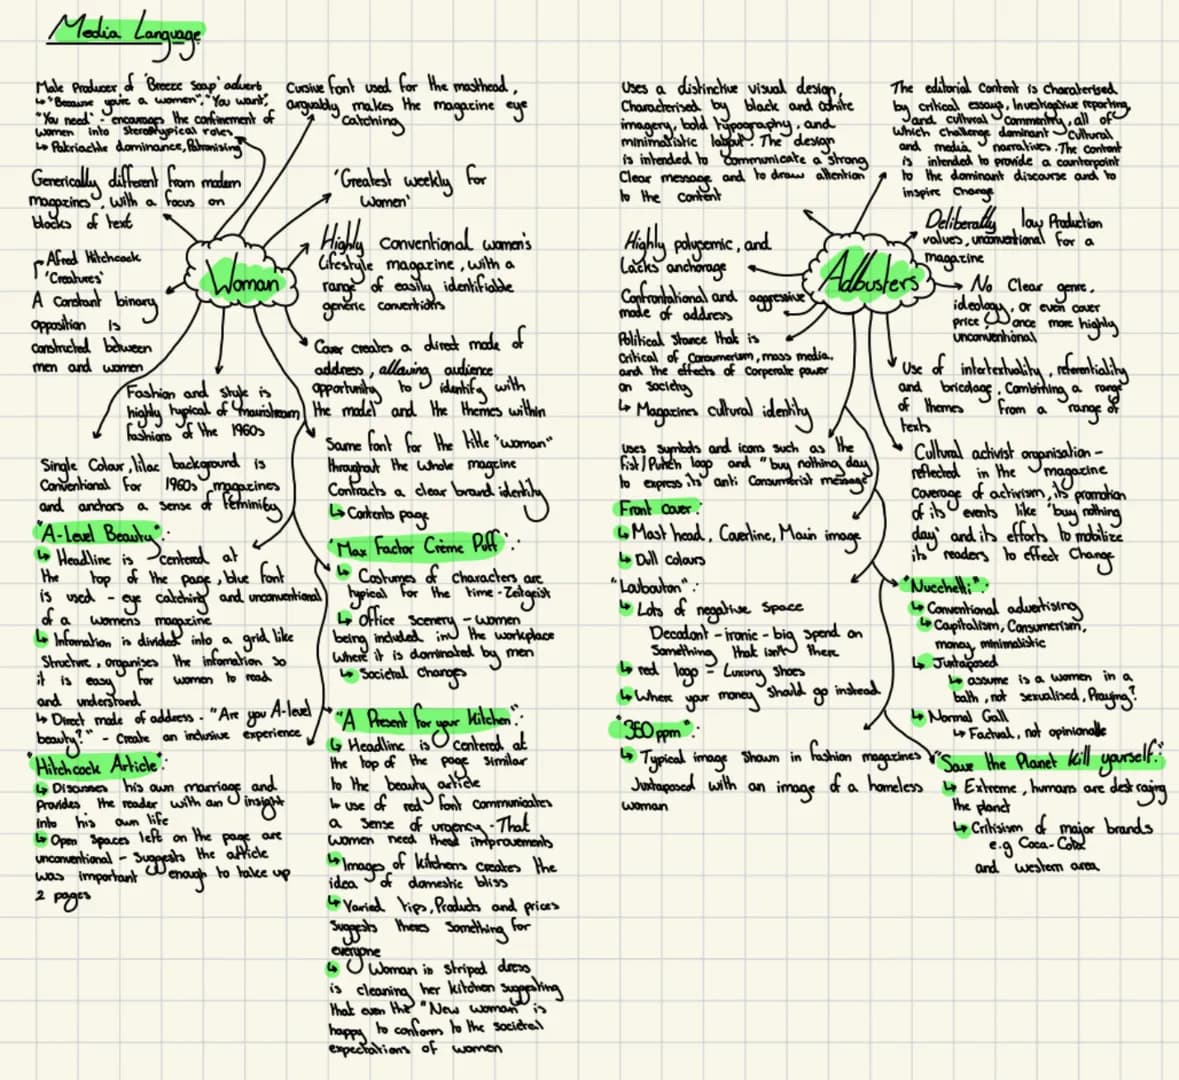 Media Language
Male Producer of 'Breeze Soap' advert
↳ "Because you're a women", "You want",
"You need" - encourages the confinement of
women into stereotypical roles
↳ Patriachle dominance, Patronising
Cursive font used for the masthead,
arguably makes the magazine eye
catching
Generically different from modern
magazines, with a focus on
blocks of text
'Greatest weekly for
Women'
Woman
Highly Conventional women's
Lifestyle magazine, with a
range of easily identifiable
generic conventions
Alfred Hitchcock
'Creatures'
A Constant binary
opposition is
constructed between
men and women
Cover creates a direct mode of
address, allowing audience
opportunity to identify with
the model and the themes within
Fashion and style is
highly typical of mainstream
fashions of the 1960s
Same font for the title "woman"
throughout the whole magzine
Contracts a clear brand identity
↳ Contents page
Single Colour, lilac background is
Conventional for 1960s magazines
and anchors a sense of feminity
"A-Level Beauty":
↳ Headline is centered at
the top of the page, blue font
is used - eye catching and unconventional
of a womens magazine
↳ Infomation is divided into a grid like
Structure, organises the infomation so
it is easy for women to read
and understand
↳ Direct mode of address - "Are you A-level
beauty?" - Create an inclusive experience
"Hitchcock Article":
↳ Discusses his own marriage and
Provides the reader with an insight
into his own life
↳ Open Spaces left on the page are
unconventional - Suggests the article
was important enough to take up
2 pages
"Max Factor Crème Puff":
↳ Costumes of characters are
typical for the time - Zeitgeist
↳ Office Scenery - women
being included in the workplace
Where it is dominated by men
↳ Societal Changes
"A Present for your Kitchen":
↳ Headline is centered at
the top of the page similar
to the beauty article
↳ use of red font communicates
a sense of urgency - That
women need these improvements
↳ Images of kitchens creates the
idea of domestic bliss
↳ Varied tips, Products and prices
Suggests theres Something for
everyone
↳ Woman in striped dress
is cleaning her kitchen suggesting
that even the "New woman" is
happy to conform to the societal
expectations of women
Uses a distinctive visual design,
Characterised by black and white
imagery, bold typography, and
minimalistic layout. The design
is intended to communicate a strong
Clear message and to draw attention
to the content
The editorial Content is Charaterised
by critical essays, Investigative reporting,
and cultural Commentry, all of
which challenge dominant cultural
and media narratives. The content
is intended to provide a counterpoint
to the dominant discourse and to
inspire Change
Adbusters
Deliberally low Production
values, unconventional for a
magazine
Highly polysemic, and
Lacks anchorage
No Clear genre,
ideology, or even cover
price, once more highly
unconventional
Confrontational and aggressive
mode of address
Political Stance that is
Critical of Consumerism, mass media,
and the effects of Corperate power
on society
↳ Magazines cultural identity
Use of intertextuality, referentiality
and bricolage, Combining a range
of themes from a range of
texts
uses symbols and icons such as the
fist/Punch logo and "buy nothing day"
to express its anti Consumerist message
Cultural activist organisation -
reflected in the magazine
Coverage of activism, its promotion
of its events like 'buy nothing
day' and its efforts to mobilize
its readers to effect Change
Front cover:
↳ Mast head, Coverline, Main image
↳ Dull colours
"Loubouton":
↳ Lots of negative space
Decadant - ironic - big spend on
Something that isn't there
↳ red logo - Luxury Shoes
↳ Where your money Should go instead
"360ppm":
↳ Typical image Shown in fashion magazines
Juxtaposed with an image of a homeless
woman
"Nucchelli":
↳ Conventional advertising
↳ Capitalism, Consumerism,
money, minimalistic
↳ Juxtaposed
↳ assume is a women in a
bath, not sexualised, Praying?
↳ Normal Gall
↳ Factual, not opinionalle
"Save the Planet kill yourself:"
↳ Extreme, humans are destroying
the planet
↳ Critisism of major brands
e.g Coca-Cola
and western area